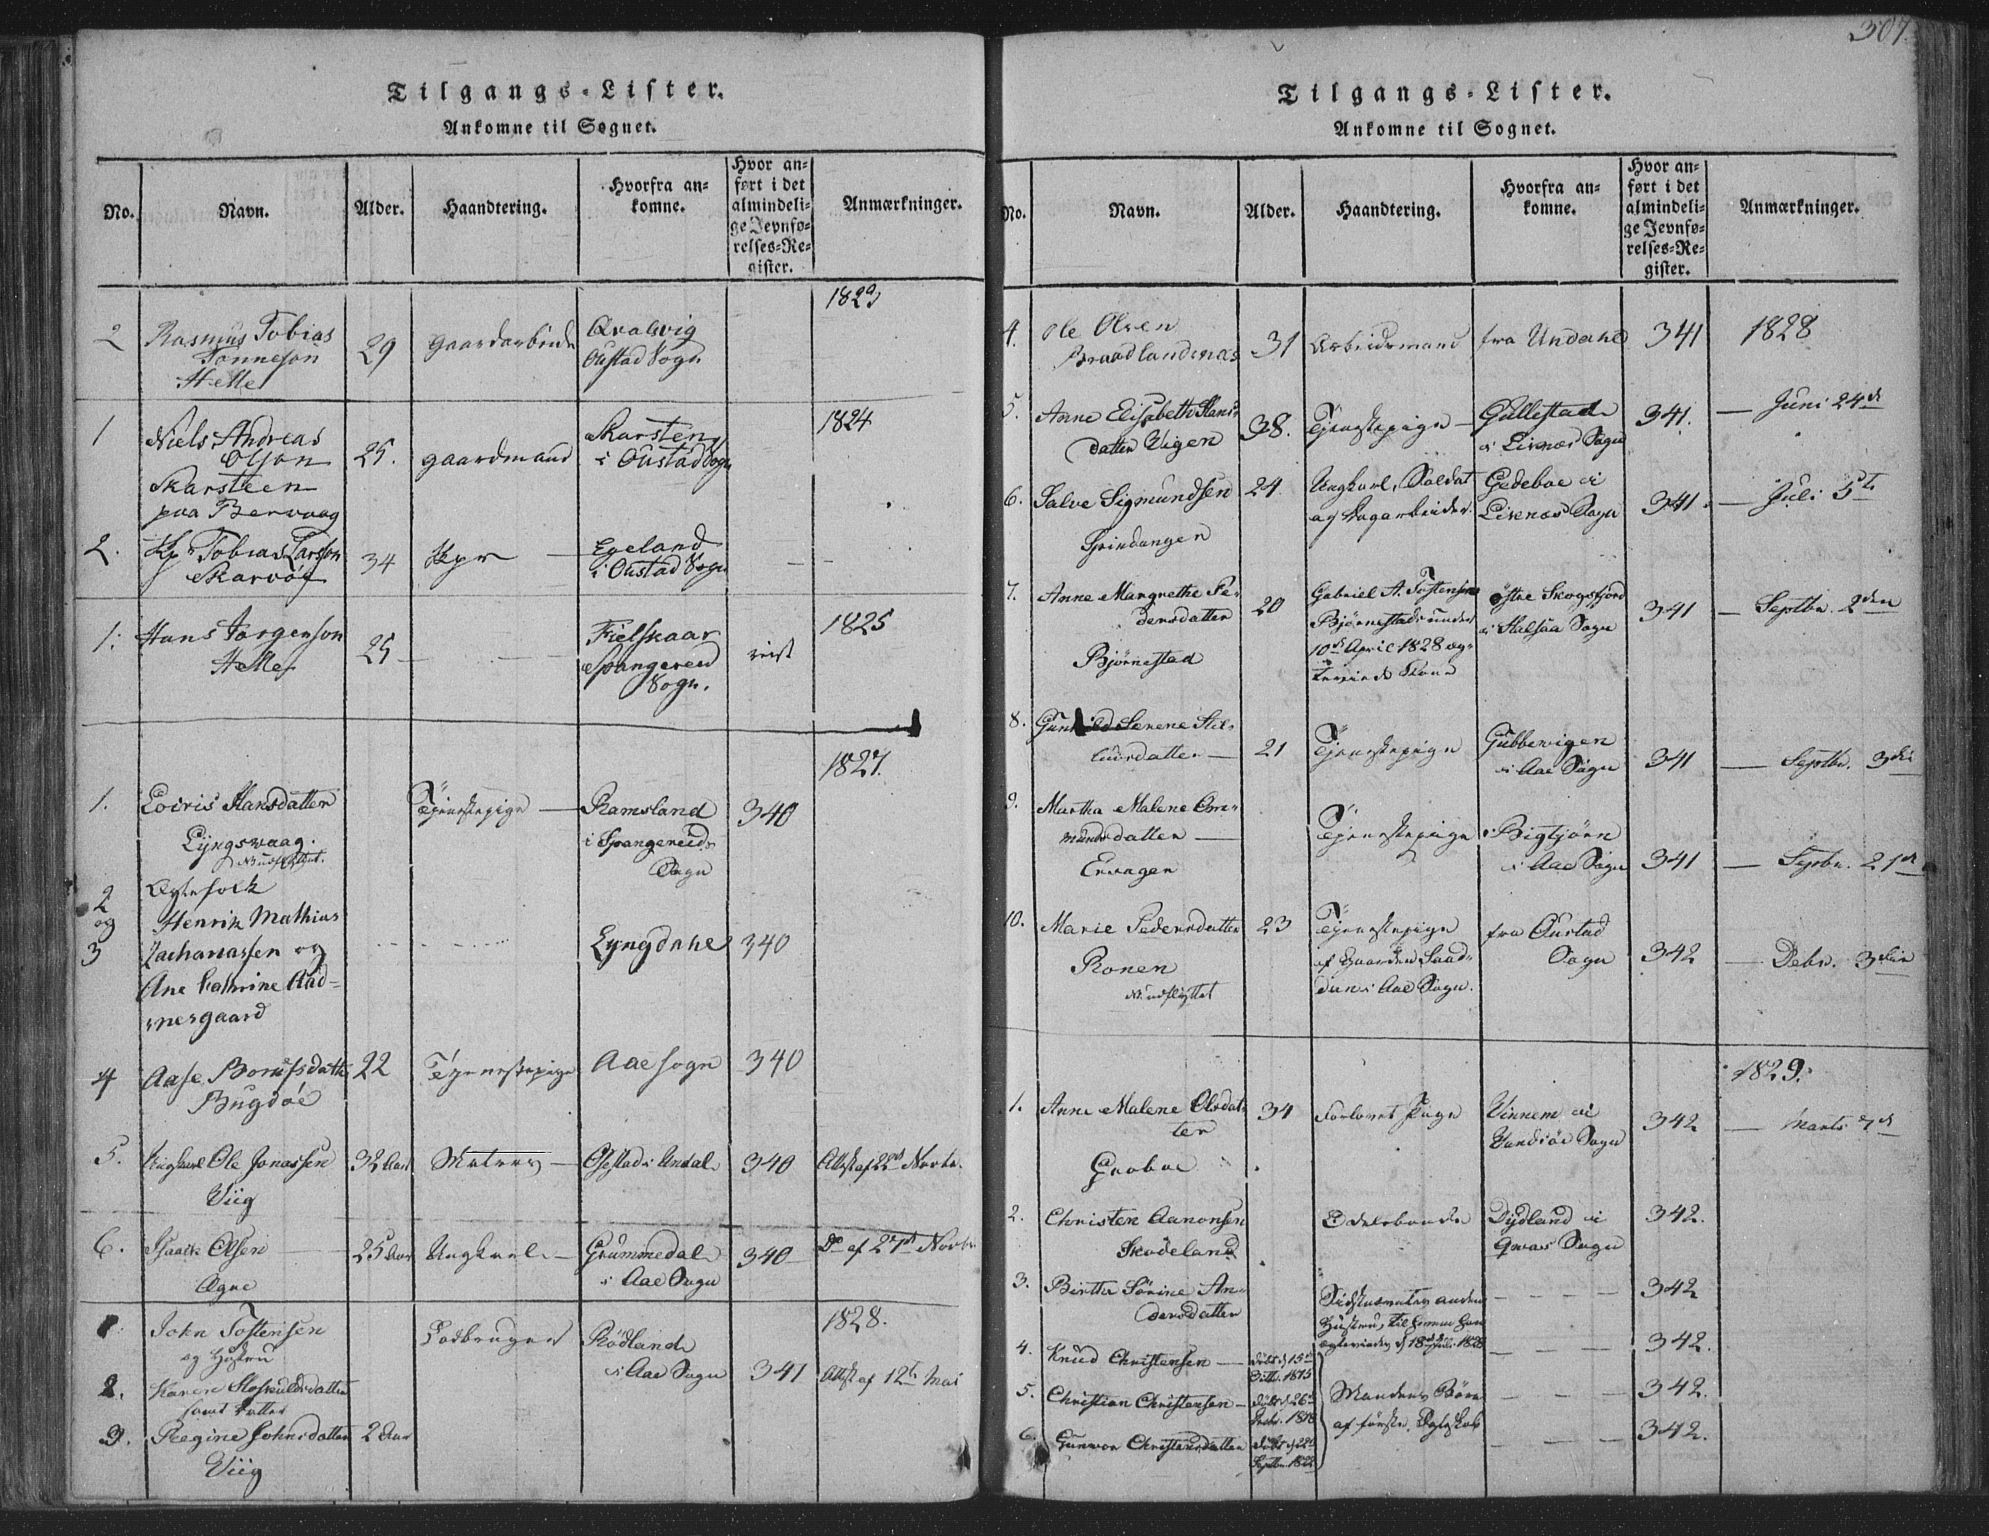 307.
Tilgangs-Lister.
Ankomne til Sognet.
No.
Navn.
Alder.
Haandtering.
Hvorfra an-
komne.
Hvor an-
ført i det
almindeli-
ge Jevnfø-
relses-Re-
gister.
Anmærkninger.
1823
2
Rasmus Tobias
Tønneson
Helle
29
gaardarbeide
Qvalvig
Oustad Sogn
1824
1
Niels Andreas
Olson
Skarsteen
paa Bervaag
25.
gaardmand
Skarsten
i Oustad Sogn
2.
Tobias Larsson
Skarvøe
34
Egeland
i Oustad Sogn
1825
1.
Hans Jørgenson
Helle
25
Fielskaar
Spangereid
Sogn.
reist
1827.
1.
Hansdatter
Lyngsvaag.
NB udflyttet.
Tjenestepige
Ramsland
i Spangereids
Sogn
340
2
og
3
Ægtefolk
Henrik Mathias
Zachariassen og
Ane Cathrine Aad-
nesgaard
Lyngdahl
340
4
Aase
Bugdøe
22
Tjenestepige
Aae Sogn
340
5.
Ungkarl Ole Jonassen
Viig
32 Aar
Undal
340
Attest af 22de Novbr.
6.
Isaack Olsen
25 Aar
Ungkarl
Grummedal
i Aae Sogn
340
Do af 27de Novbr
1828.
1
John Tostensen
og Hustru
Rødland
i Aae Sogn
341
Attest af 12te Mai
2.
Karen
samt Datter
3.
Regine Johnsdatter
Viig
2 Aar
Tilgangs-Lister.
Ankomne til Sognet.
No.
Navn.
Alder.
Haandtering.
Hvorfra an-
komne.
Hvor an-
ført i det
almindeli-
ge Jevnfø-
relses-Re-
gister.
Anmærkninger.
4.
Ole Olsen
Braadlandsnæs
31
Arbeidsmand
fra Undahl
341
1828
5.
Anne Elisabeth Hans-
datter Vigen
38.
Tjenestepige
Gullestad
i Lisnæs Sogn
341.
Juni 24de
6.
Salve Sigmundsen
Spindangen
24.
Ungkarl, Soldat
Gedeboe i
Lisnæs Sogn
341
Juli 5te
7.
Anne Margrethe Pe-
dersdatter
Bjørnestad
20
Gabriel A. Tostensen
Bjørnestads under
10de April 1828 æg-
teviede Kone
østre Skogsfjord
i Halsaa Sogn
341
Septbr. 2den
8.
Serene
21
Tjenestepige
Gubbevigen
i Aae Sogn
341
Septbr. 3die
9.
Martha Malene Om-
mundsdatter
Ervagen
Tjenestepige
Bigtjørn
i Aae Sogn
341
Septbr. 21de
10.
Marie Pedersdatter
Ronen
NB udflyttet
23
Tjenestepige
af Gaarden
i Aae Sogn.
fra Oustad
Sogn
342
Debr. 3die
1829.
1.
Anne Malene Olsdat-
ter
Graboe
34
Forlovet Pige
Vinnem i
Sogn
342
Marts 7de
2.
Christen Aanonsen
Skødeland
Odelsbonde
Dydland i
Qvaas Sogn
342.
3.
Berthe Sørine An-
dersdatter
342
4.
Knud Christensen
født d 15de
1815
342.
5.
Christian Christensen
født d 26de
1818
Mandens Børn
af første Ægteskab
342.
6.
Gunvor Christensdatter
født d 22de
Septbr. 1822
342.